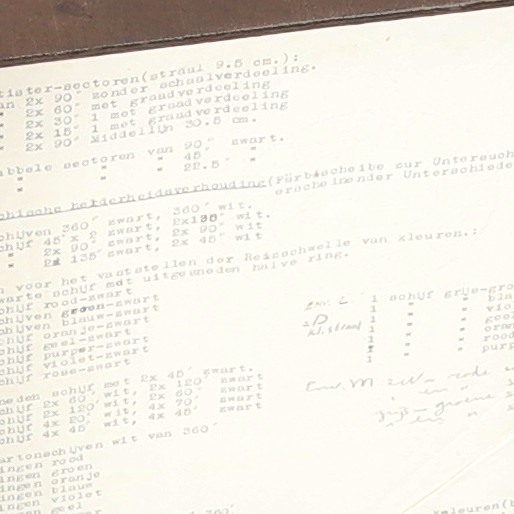 tister-sectoren(straal 9.5 cm.):
an 2x 90° zonder schaalverdeeling.
" 2x 60° met graadverdeeling
" 2x 30° 1 met graadverdeeling
" 2x 15° 1 met graadverdeeling
" 2x 90° Middellijn 30.5 cm.
bbele sectoren van 90° zwart.
" " " 45° "
" " " 22.5° "
phische helderheidsverhouding(Färbscheibe zur Untersuch
erscheinender Unterschiede
chijven 360° zwart, 360° wit.
chijf 45° x 2 zwart, 2x135° wit.
" 2x 90° zwart, 2x 90° wit
" 2x 135° zwart, 2x 45° wit
n voor het vaststellen der Reizschwelle van kleuren.:
warte schijf met uitgesneden halve ring.
chijf rood-zwart
chijven groen-zwart
chijven blauw-zwart
chijf oranje-zwart
chijf geel-zwart
chijf purper-zwart
chijf violet-zwart
chijf rose-zwart
1 schijf grijs-gro
1 " " bla
1 " " vio
1 " " geel
1 " " oran
1 " " rood
1 " " purp
neden schijf met 2x 45° zwart.
chijf 2x 60° wit, 2x 120° zwart
chijf 2x 120° wit, 2x 60° zwart
chijf 4x 20° wit, 4x 70° zwart
chijf 4x 45° wit, 4x 45° zwart
artonschijven wit van 360°
ingen rood
ingen groen
ingen oranje
ingen blauw
ingen violet
ingen geel
360°
kleuren(